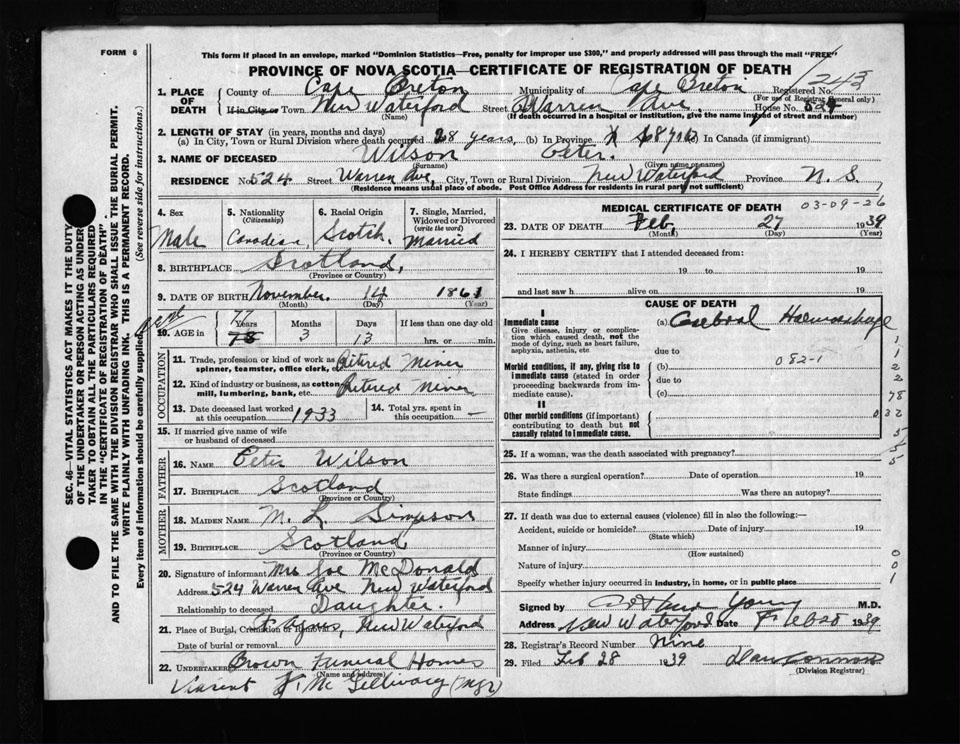 FORM 6
This form if placed in an envelope, marked "Dominion Statistics—Free, penalty for improper use $300," and properly addressed will pass through the mail "FREE"
PROVINCE OF NOVA SCOTIA—CERTIFICATE OF REGISTRATION OF DEATH
1243
1. PLACE OF DEATH
County of Cape Breton Municipality of Cape Breton Registered No.
(For use of Registrar General only)
If in City or Town New Waterford Street Warren Ave House No. 524
(Name) (If death occurred in a hospital or institution, give the name instead of street and number)
2. LENGTH OF STAY (in years, months and days)
(a) In City, Town or Rural Division where death occurred 28 years, (b) In Province (c) in Canada (if immigrant)
3. NAME OF DECEASED Wilson Peter.
(Surname) (Given name or names)
RESIDENCE No. 524 Street Warren Ave, City, Town or Rural Division New Waterford Province N. S,
(Residence means usual place of abode. Post Office Address for residents in rural parts not sufficient)
4. Sex
Male
5. Nationality
(Citizenship)
Canadian
6. Racial Origin
Scotch.
7. Single, Married, Widowed or Divorced
(write the word)
Married
8. BIRTHPLACE Scotland,
(Province or Country)
9. DATE OF BIRTH November. 14 1861
(Month) (Day) (Year)
10. AGE in
77
Years Months Days If less than one day old
78 3 13 hrs. or min.
OCCUPATION
11. Trade, profession or kind of work as spinner, teamster, office clerk, etc. Retired Miner
12. Kind of industry or business, as cotton mill, lumbering, bank, etc. Retired Miner
13. Date deceased last worked at this occupation 1933
14. Total yrs. spent in this occupation —
15. If married give name of wife or husband of deceased
FATHER
16. NAME Peter Wilson
17. BIRTHPLACE Scotland
(Province or Country)
MOTHER
18. MAIDEN NAME M. L. Simpson
19. BIRTHPLACE Scotland
(Province or Country)
20. Signature of informant Mrs Joe McDonald
Address 524 Warren Ave New Waterford
Relationship to deceased Daughter.
21. Place of Burial, Cremation or Removal New Waterford
Date of burial or removal
22. UNDERTAKER Brown Funeral Homes
(Name and address)
Vincent J. McGillivary (mgr)
MEDICAL CERTIFICATE OF DEATH
03-09-26
23. DATE OF DEATH Feb, 27 1939
(Month) (Day) (Year)
24. I HEREBY CERTIFY that I attended deceased from:
19 to 19
and last saw h alive on 19
CAUSE OF DEATH
I
Immediate cause
Give disease, injury or complication which caused death, not the mode of dying, such as heart failure, asphyxia, asthenia, etc.
(a) Cerebral Haemorrhage
due to
082-1
Morbid conditions, if any, giving rise to immediate cause (stated in order proceeding backwards from immediate cause).
(b)
due to
(c)
II
Other morbid conditions (if important) contributing to death but not causally related to immediate cause.
1
1
2
2
78
032
5
5
5
25. If a woman, was the death associated with pregnancy?
26. Was there a surgical operation? Date of operation 19
State findings Was there an autopsy?
27. If death was due to external causes (violence) fill in also the following:—
Accident, suicide or homicide? Date of injury 19
(State which)
Manner of injury
(How sustained)
Nature of injury
Specify whether injury occurred in industry, in home, or in public place
0
0
1
Signed by Arthur Young M.D.
Address New Waterford Date 1939
28. Registrar's Record Number Nine
29. Filed Feb 28 1939
(Division Registrar)
SEC. 46—VITAL STATISTICS ACT MAKES IT THE DUTY
OF THE UNDERTAKER OR PERSON ACTING AS UNDERTAKER TO OBTAIN ALL THE PARTICULARS REQUIRED
IN THE "CERTIFICATE OF REGISTRATION OF DEATH".
AND TO FILE THE SAME WITH THE DIVISION REGISTRAR WHO SHALL ISSUE THE BURIAL PERMIT.
WRITE PLAINLY WITH UNFADING INK. THIS IS A PERMANENT RECORD.
Every item of information should be carefully supplied. (See reverse side for instructions.)